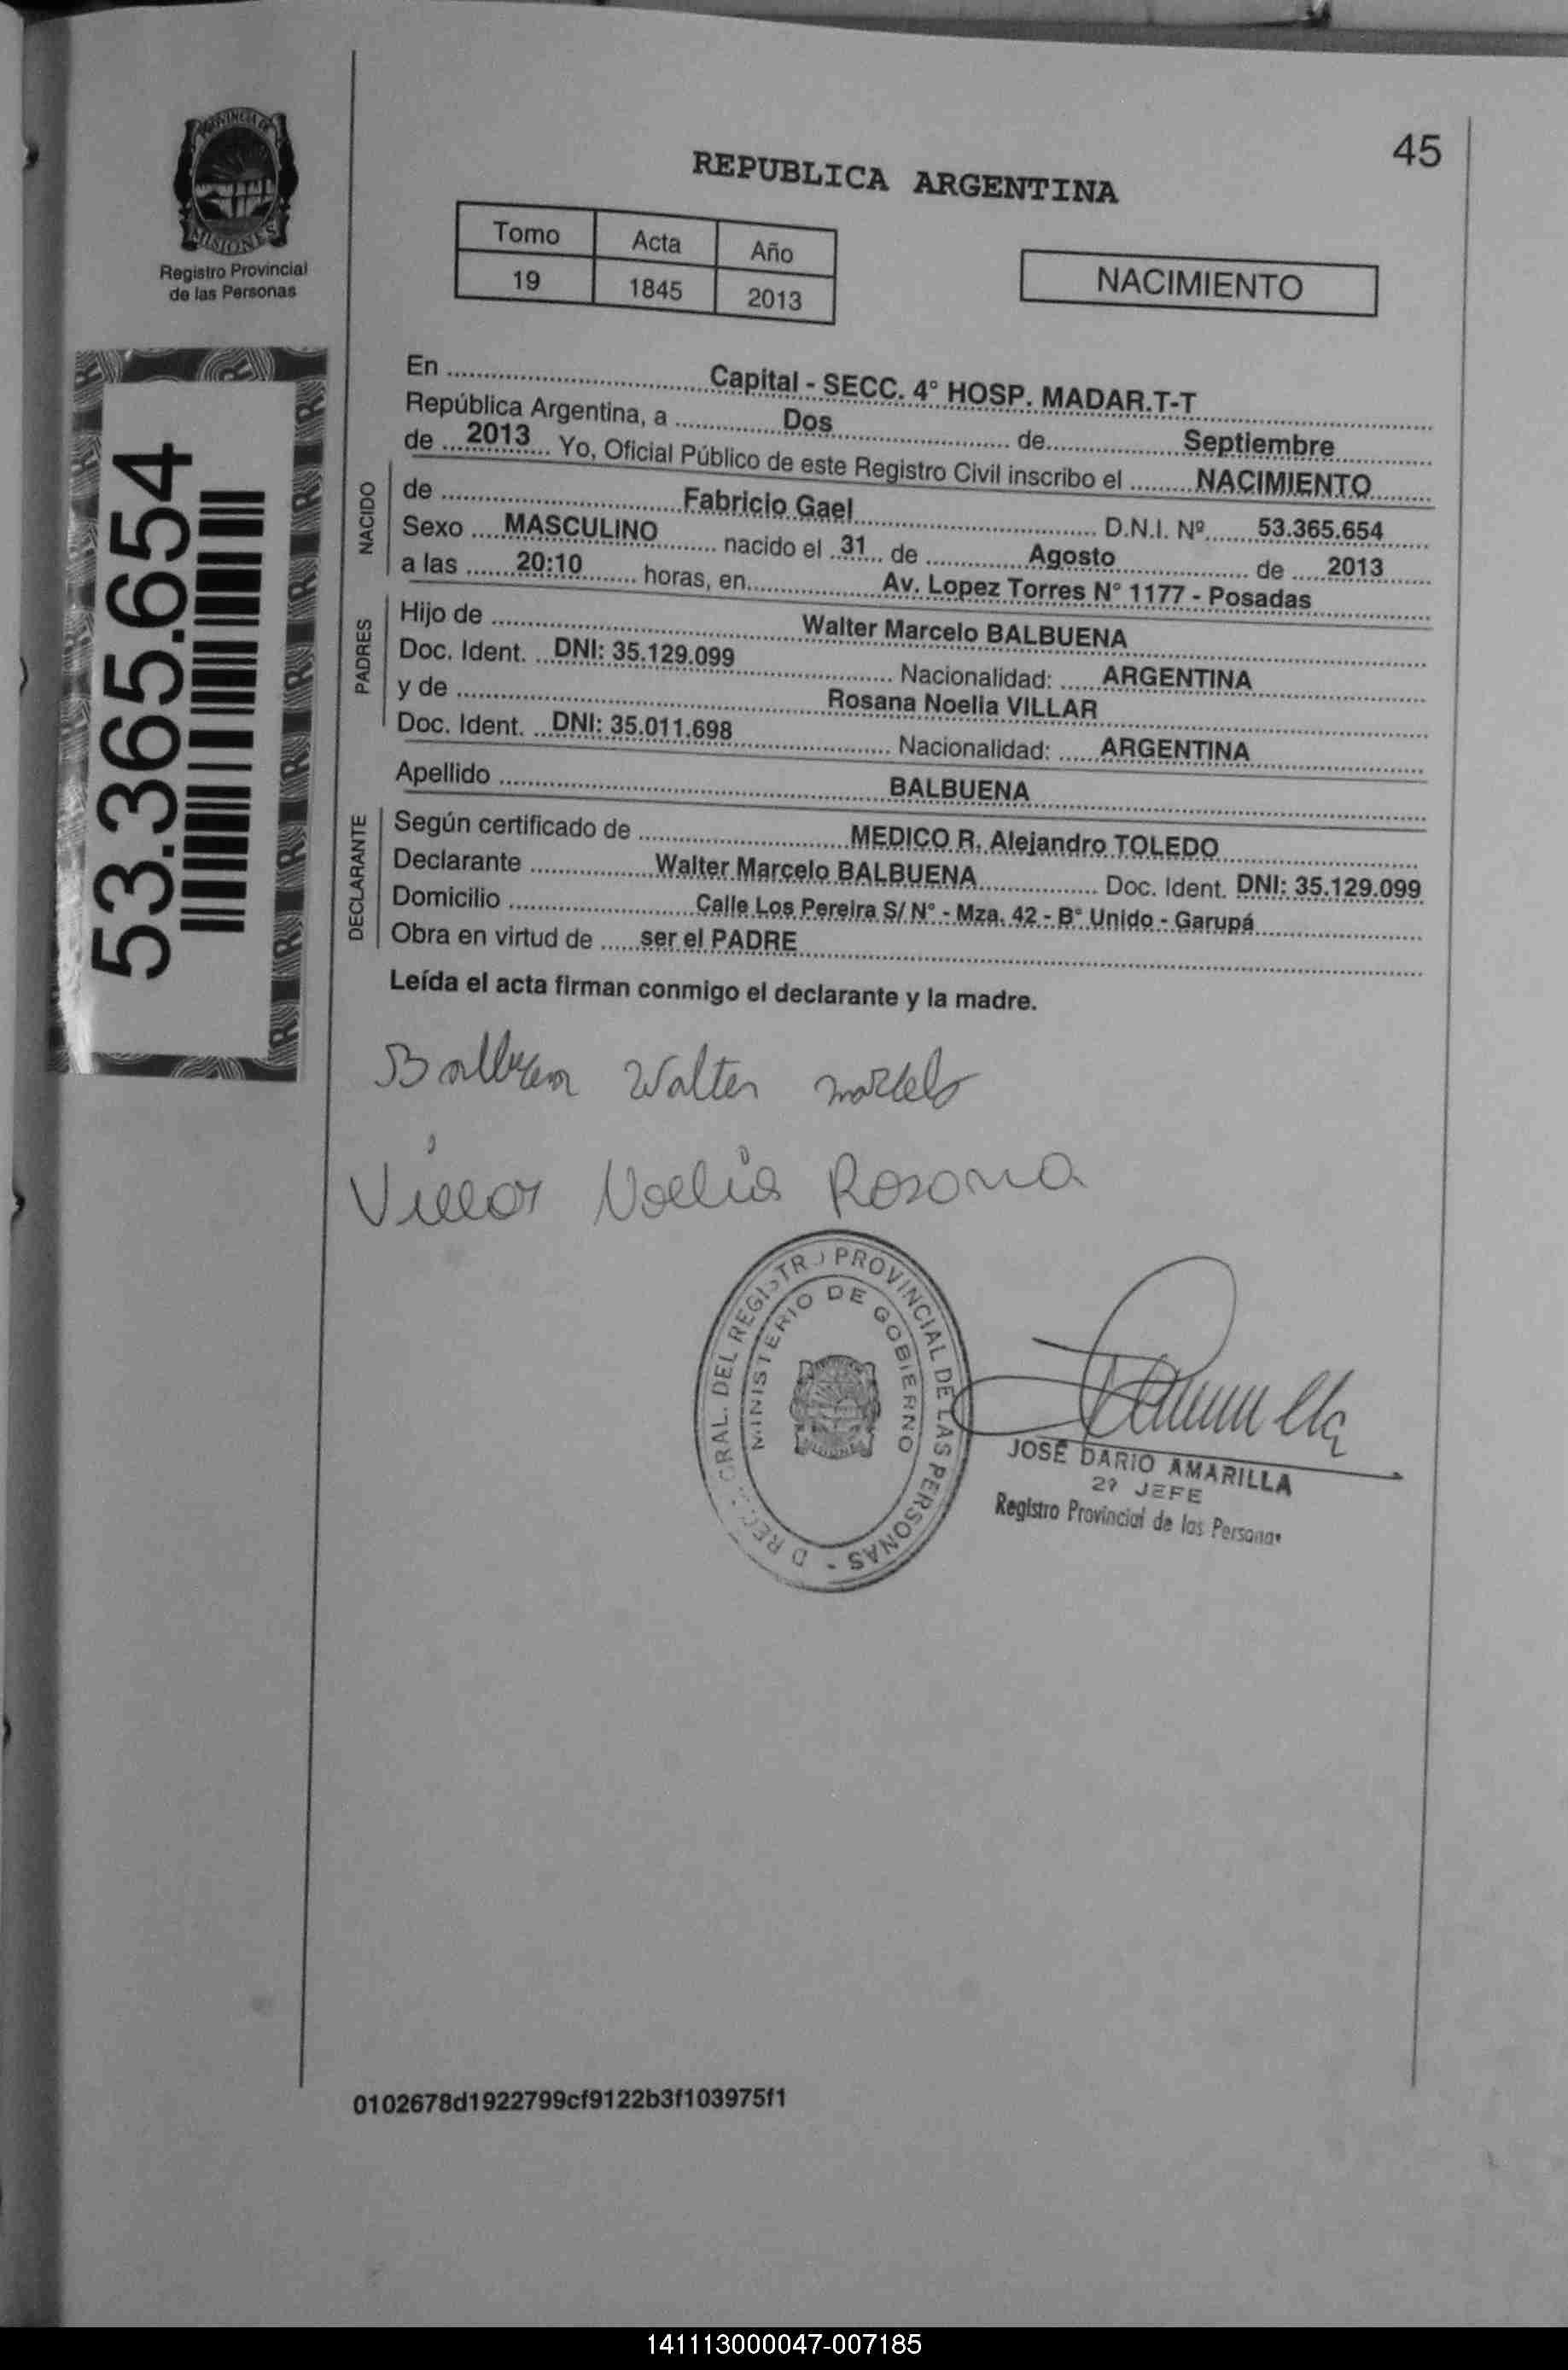 45
REPUBLICA ARGENTINA
PROVINCIA DE
MISIONES
Registro Provincial
de las Personas
Tomo Acta Año
19 1845 2013
NACIMIENTO
53.365.654
En Capital - SECC. 4° HOSP. MADAR.T-T
República Argentina, a Dos de Septiembre
de 2013 Yo, Oficial Público de este Registro Civil inscribo el NACIMIENTO
NACIDO
de Fabricio Gael D.N.I. Nº 53.365.654
Sexo MASCULINO nacido el 31 de Agosto de 2013
a las 20:10 horas, en Av. Lopez Torres N° 1177 - Posadas
PADRES
Hijo de Walter Marcelo BALBUENA
Doc. Ident. DNI: 35.129.099 Nacionalidad: ARGENTINA
y de Rosana Noelia VILLAR
Doc. Ident. DNI: 35.011.698 Nacionalidad: ARGENTINA
Apellido BALBUENA
DECLARANTE
Según certificado de MEDICO R. Alejandro TOLEDO
Declarante Walter Marcelo BALBUENA Doc. Ident. DNI: 35.129.099
Domicilio Calle Los Pereira S/ N° - Mza. 42 - B° Unido - Garupá
Obra en virtud de ser el PADRE
Leída el acta firman conmigo el declarante y la madre.
Balbuena Walter Marcelo
Villar Noelia Rosana
GRAL. DEL REGISTRO PROVINCIAL DE LAS PERSONAS -
MINISTERIO DE GOBIERNO
MISIONES
JOSÉ DARIO AMARILLA
2º JEFE
Registro Provincial de las Personas
0102678d1922799cf9122b3f103975f1
141113000047-007185